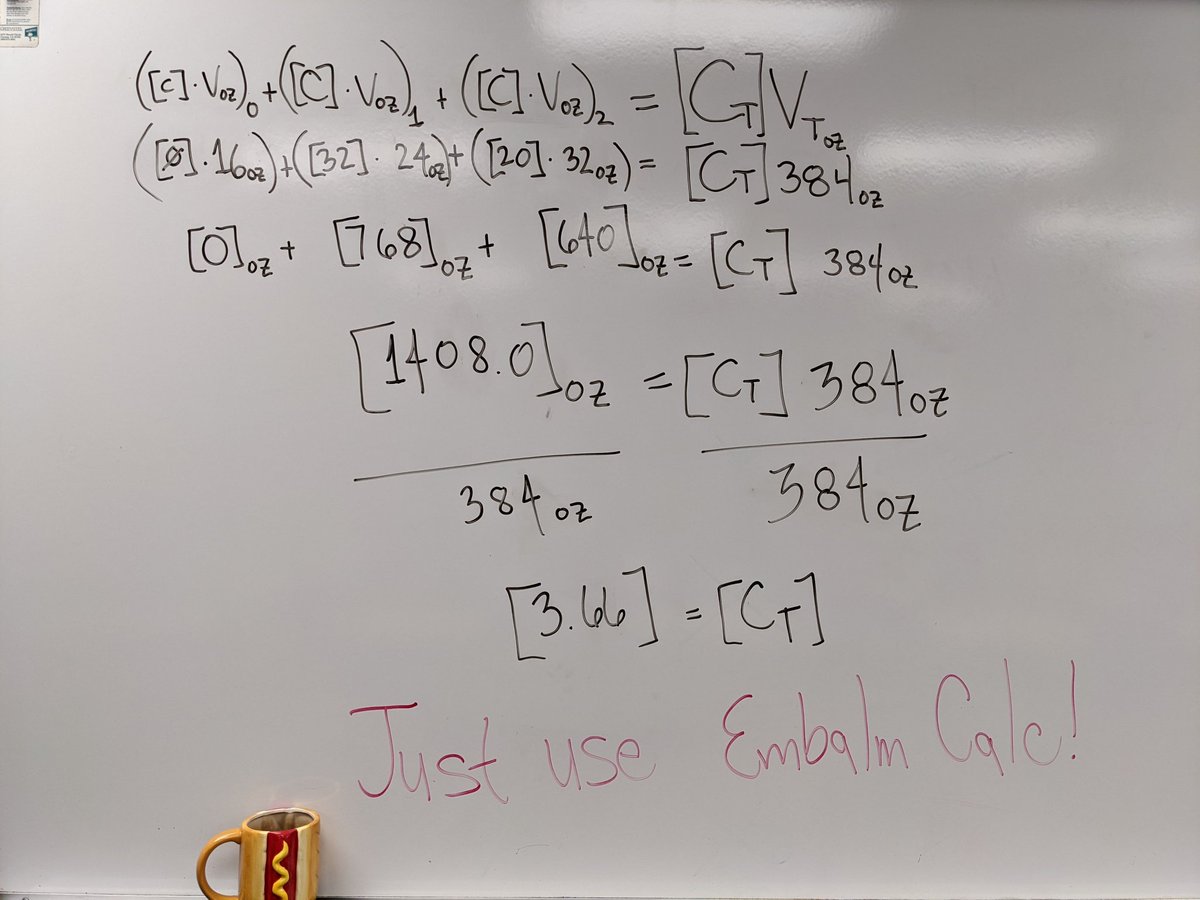 ([C]·Voz)₀ + ([C]·Voz)₁ + ([C]·Voz)₂ = [CT]VToz
([0]·16oz) + ([32]·24oz) + ([20]·32oz) = [CT] 384oz
[0]oz + [768]oz + [640]oz = [CT] 384oz
[1408.0]oz = [CT] 384oz
384oz 384oz
[3.66] = [CT]
Just use Embalm Calc!